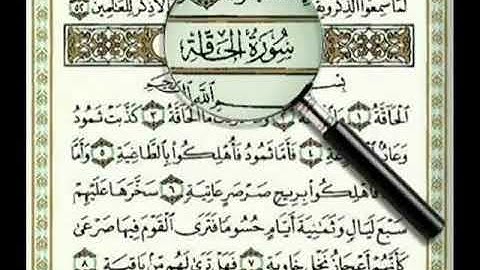 لَمَّا سَمِعُوا الذِّكْرَ وَيَقُ ذِكْرٌ لِّلْعَالَمِينَ ٥٢
سُورَةُ الْحَاقَّةِ
بِسْمِ اللَّهِ
الْحَاقَّةُ ١ مَا الْحَاقَّةُ ٣ كَذَّبَتْ ثَمُودُ
وَعَادٌ ٤ فَأَمَّا ثَمُودُ فَأُهْلِكُوا بِالطَّاغِيَةِ ٥ وَأَمَّا
فَأُهْلِكُوا بِرِيحٍ صَرْصَرٍ عَاتِيَةٍ ٦ سَخَّرَهَا عَلَيْهِمْ
سَبْعَ لَيَالٍ وَثَمَانِيَةَ أَيَّامٍ حُسُومًا فَتَرَى الْقَوْمَ فِيهَا صَرْعَىٰ
كَأَنَّهُمْ أَعْجَازُ نَخْلٍ خَاوِيَةٍ ٧ فَهَلْ تَرَىٰ لَهُم مِّن بَاقِيَةٍ ٨